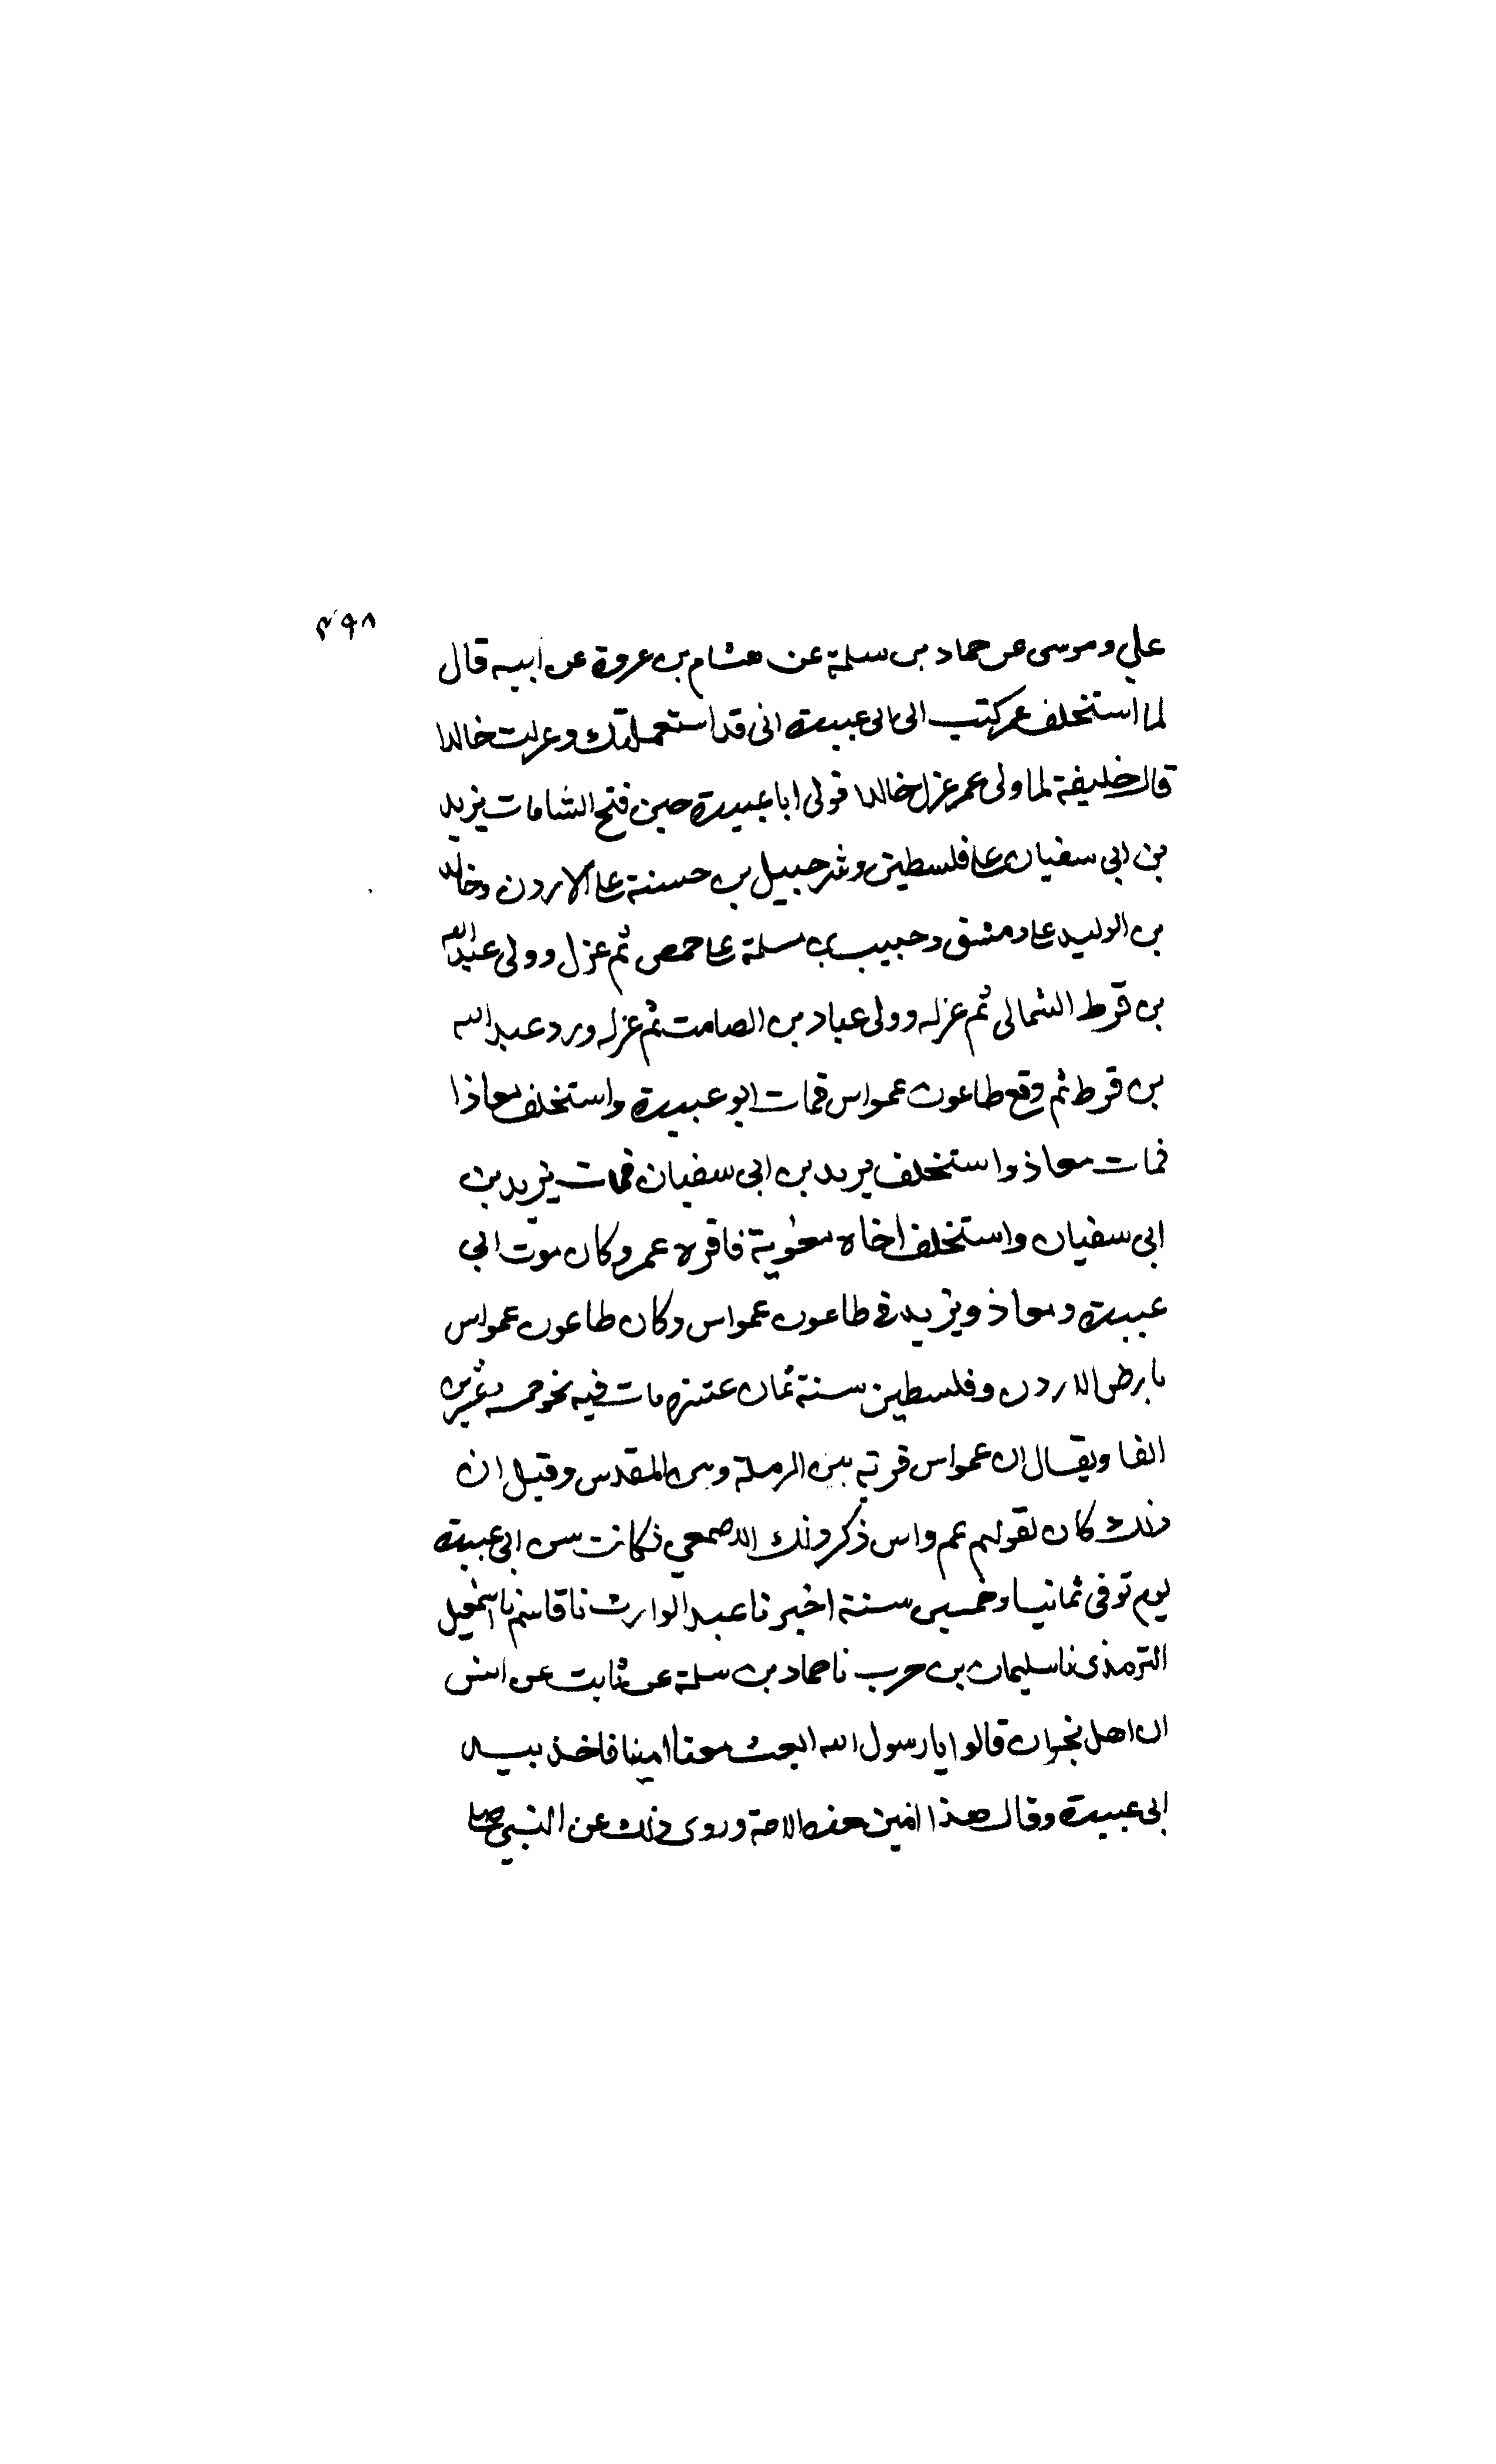 ٤٩٨
علي وموسى عن حماد بن سلمة عن هشام بن عروة عن ابيه قال
لما استخلف عمر كتب الى ابي عبيدة اني قد استعملتك وعزلت خالدا
قال خليفة لما ولى عمر عزل خالدا فولى ابا عبيدة حين فتح الشامات يزيد
بن ابى سفيان على فلسطين وشرحبيل بن حسنة على الاردن وخالد
بن الوليد على دمشق وحبيب بن مسلمة على حمص ثم عزل وولى عبد الله
بن قرط الثمالى ثم عزله وولى عباد بن الصامت ثم عزله ورد عبد الله
بن قرط ثم وقع طاعون عمواس فمات ابو عبيدة واستخلف معاذا
فمات معاذ واستخلف يزيد بن ابى سفيان فمات يزيد بن
ابى سفيان واستخلف اخاه معوية فاقره عمر وكان موت ابي
عبيدة ومعاذ ويزيد في طاعون عمواس وكان طاعون عمواس
بارض الاردن وفلسطين سنة ثمان عشرة مات فيه نحو خمسة وعشرين
الفا ويقال ان عمواس قرية بين الرملة وبيت المقدس وقيل ان
ذلك كان لقولهم عم واس ذكر ذلك الاصمعي فكانت سن ابى عبيدة
يوم توفى ثمانيا وخمسين سنة اخبرنا عبد الوارث نا قاسم نا اسمعيل
الترمذى نا سليمان بن حرب نا حماد بن سلمة عن ثابت عن انس
ان اهل نجران قالوا يا رسول الله ابعث معنا امينا فاخذ بيد
ابى عبيدة وقال هذا امين هذه الامة وروى ذلك عن النبي صلى